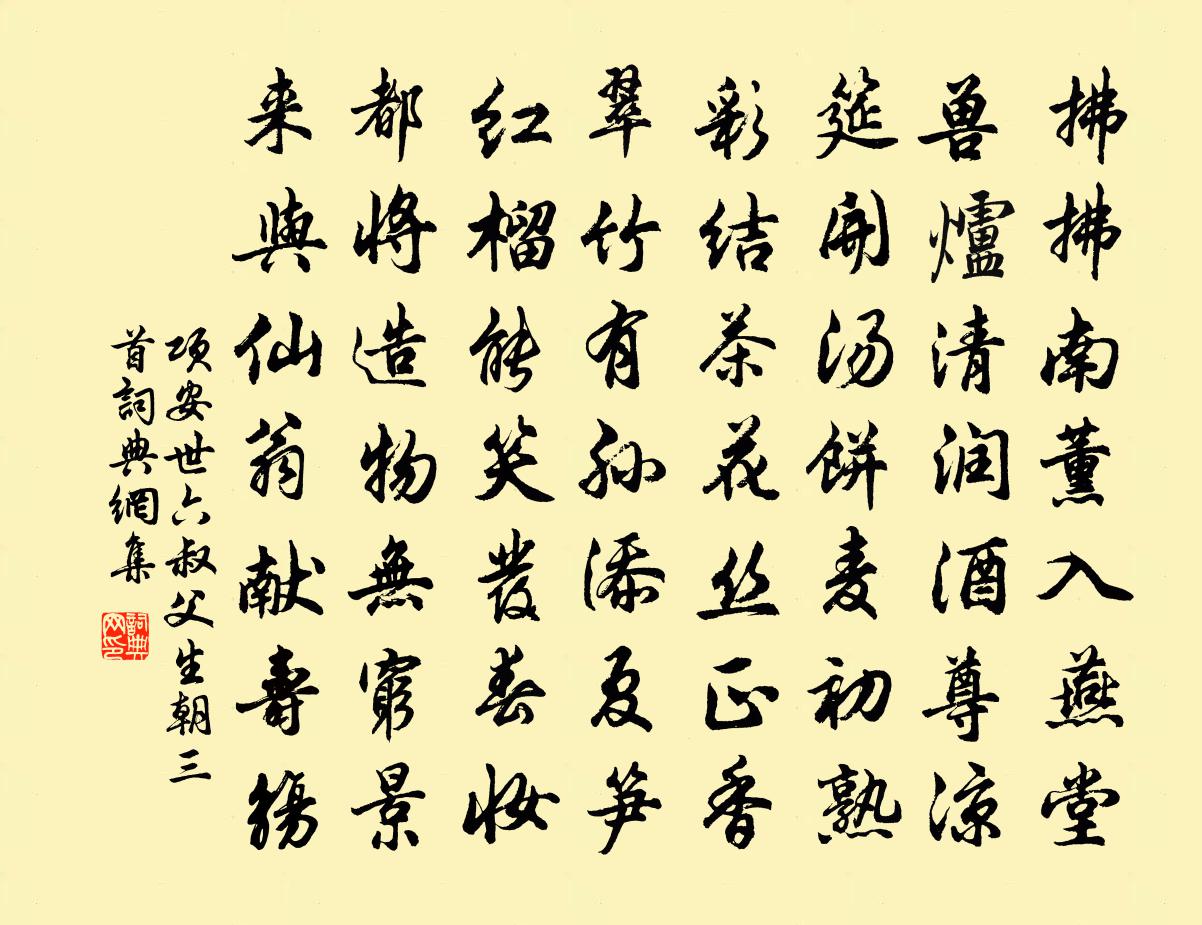 拂拂南薰入燕堂
兽爐清润酒尊凉
筵開汤餅麦初熟
彩结茶花丝正香
翠竹有孙添夏笋
红榴能笑發春妆
都将造物無窮景
来與仙翁献壽觴
项安世六叔父生朝三
首詞典網集
詞典网印